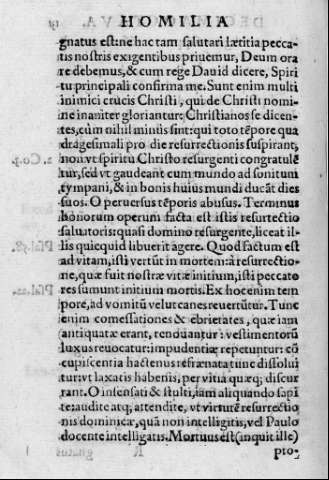 HOMILIA
gnatus est: ne hac tam salutari lætitia pecca-
tis nostris exigentibus priuemur, Deum ora
re debemus, & cum rege Dauid dicere, Spiri
tu principali confirma me. Sunt enim multi
inimici crucis Christi, qui de Christi nomi-
ne inaniter gloriantur: Christianos se dicen-
tes, cùm nihil minùs sint: qui toto tẽpore qua
dragesimali pro die resurrectionis suspirant,
non vt spiritu Christo resurgenti congratulẽ
tur, sed vt gaudeant cum mundo ad sonitum
tympani, & in bonis huius mundi ducãt dies
suos. O peruersus tẽporis abusus. Terminus
bonorum operum facta est istis resurrectio
saluatoris: quasi domino resurgente, liceat il-
lis quicquid libuerit agere. Quod factum est
ad vitam, isti vertũt in mortem: à resurrectio-
ne, quæ fuit nostræ vitæ initium, isti peccato
res sumunt initium mortis. Ex hoc enim tem
pore, ad vomitũ velut canes reuertũtur. Tunc
enim comessationes & ebrietates, quæ iam
antiquatæ erant, renouantur: vestimentorũ
luxus reuocatur: impudentiæ repetuntur: cõ
cupiscentia hactenus refrænata tunc dissolui
tur: vt laxatis habenis, per vitia quæq; discur
rant. O insensati & stulti, iam aliquando sapi
te: audite atq; attendite, vt virtutẽ resurrectio
nis dominicæ, quã non intelligitis, vel Paulo
docente intelligatis. Mortuus est (inquit ille)
pro-